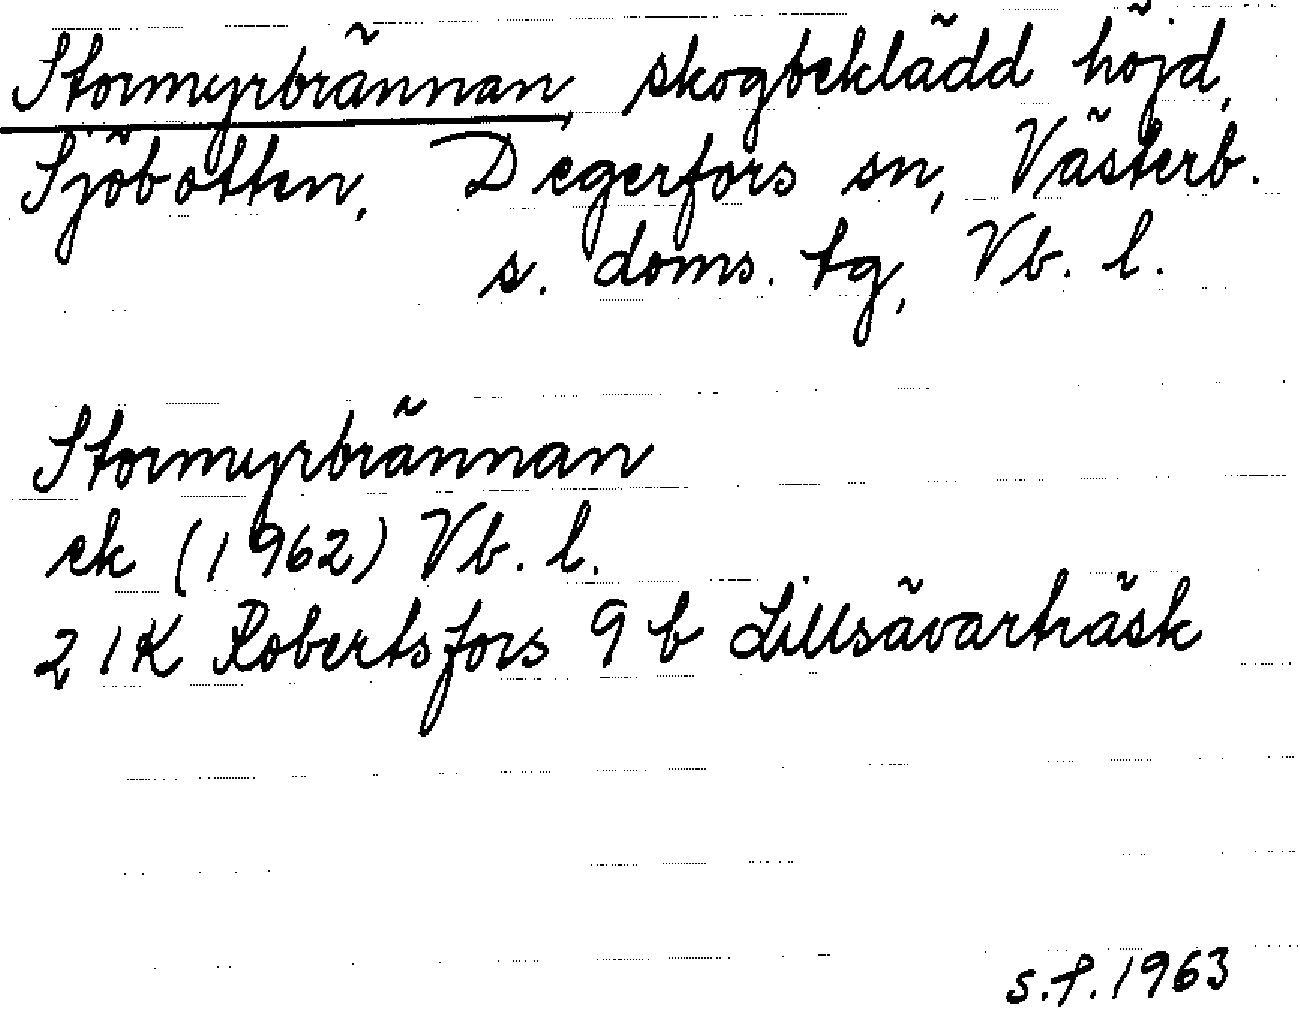 Stormyrbrännan, skogbeklädd höjd,
Sjöbotten, Degerfors sn, Västerb.
s. doms. tg, Vb. l.
Stormyrbrännan
ek (1962) Vb. l.
21K Robertsfors 9 b Lillsävarträsk
s.f. 1963